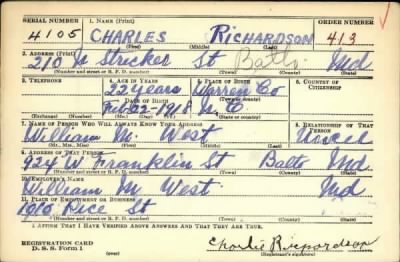 SERIAL NUMBER 1. NAME (Print) ORDER NUMBER
4105 CHARLES RICHARDSON 413
(First) (Middle) (Last)
2. ADDRESS (Print)
210 St Balto. Md
(Number and street or R. F. D. number) (Town) (County) (State)
3. TELEPHONE 4. AGE IN YEARS 5. PLACE OF BIRTH 6. COUNTRY OF CITIZENSHIP
22 years Warren Co
DATE OF BIRTH (Town or county)
Feb 22 1918 N. C.
(Exchange) (No.) (Mo.) (Day) (Yr.) (State or country)
7. NAME OF PERSON WHO WILL ALWAYS KNOW YOUR ADDRESS 8. RELATIONSHIP OF THAT PERSON
William M. West Uncle
(Mr., Mrs., Miss) (First) (Middle) (Last)
9. ADDRESS OF THAT PERSON
924 W. Franklin St Balto Md
(Number and street or R. F. D. number) (Town) (County) (State)
10. EMPLOYER'S NAME
William M. West Md
11. PLACE OF EMPLOYMENT OR BUSINESS
1010 Rice St
(Number and street or R. F. D. number) (Town) (County) (State)
I AFFIRM THAT I HAVE VERIFIED ABOVE ANSWERS AND THAT THEY ARE TRUE.
REGISTRATION CARD
D. S. S. Form 1 Charlie
(Registrant's signature)